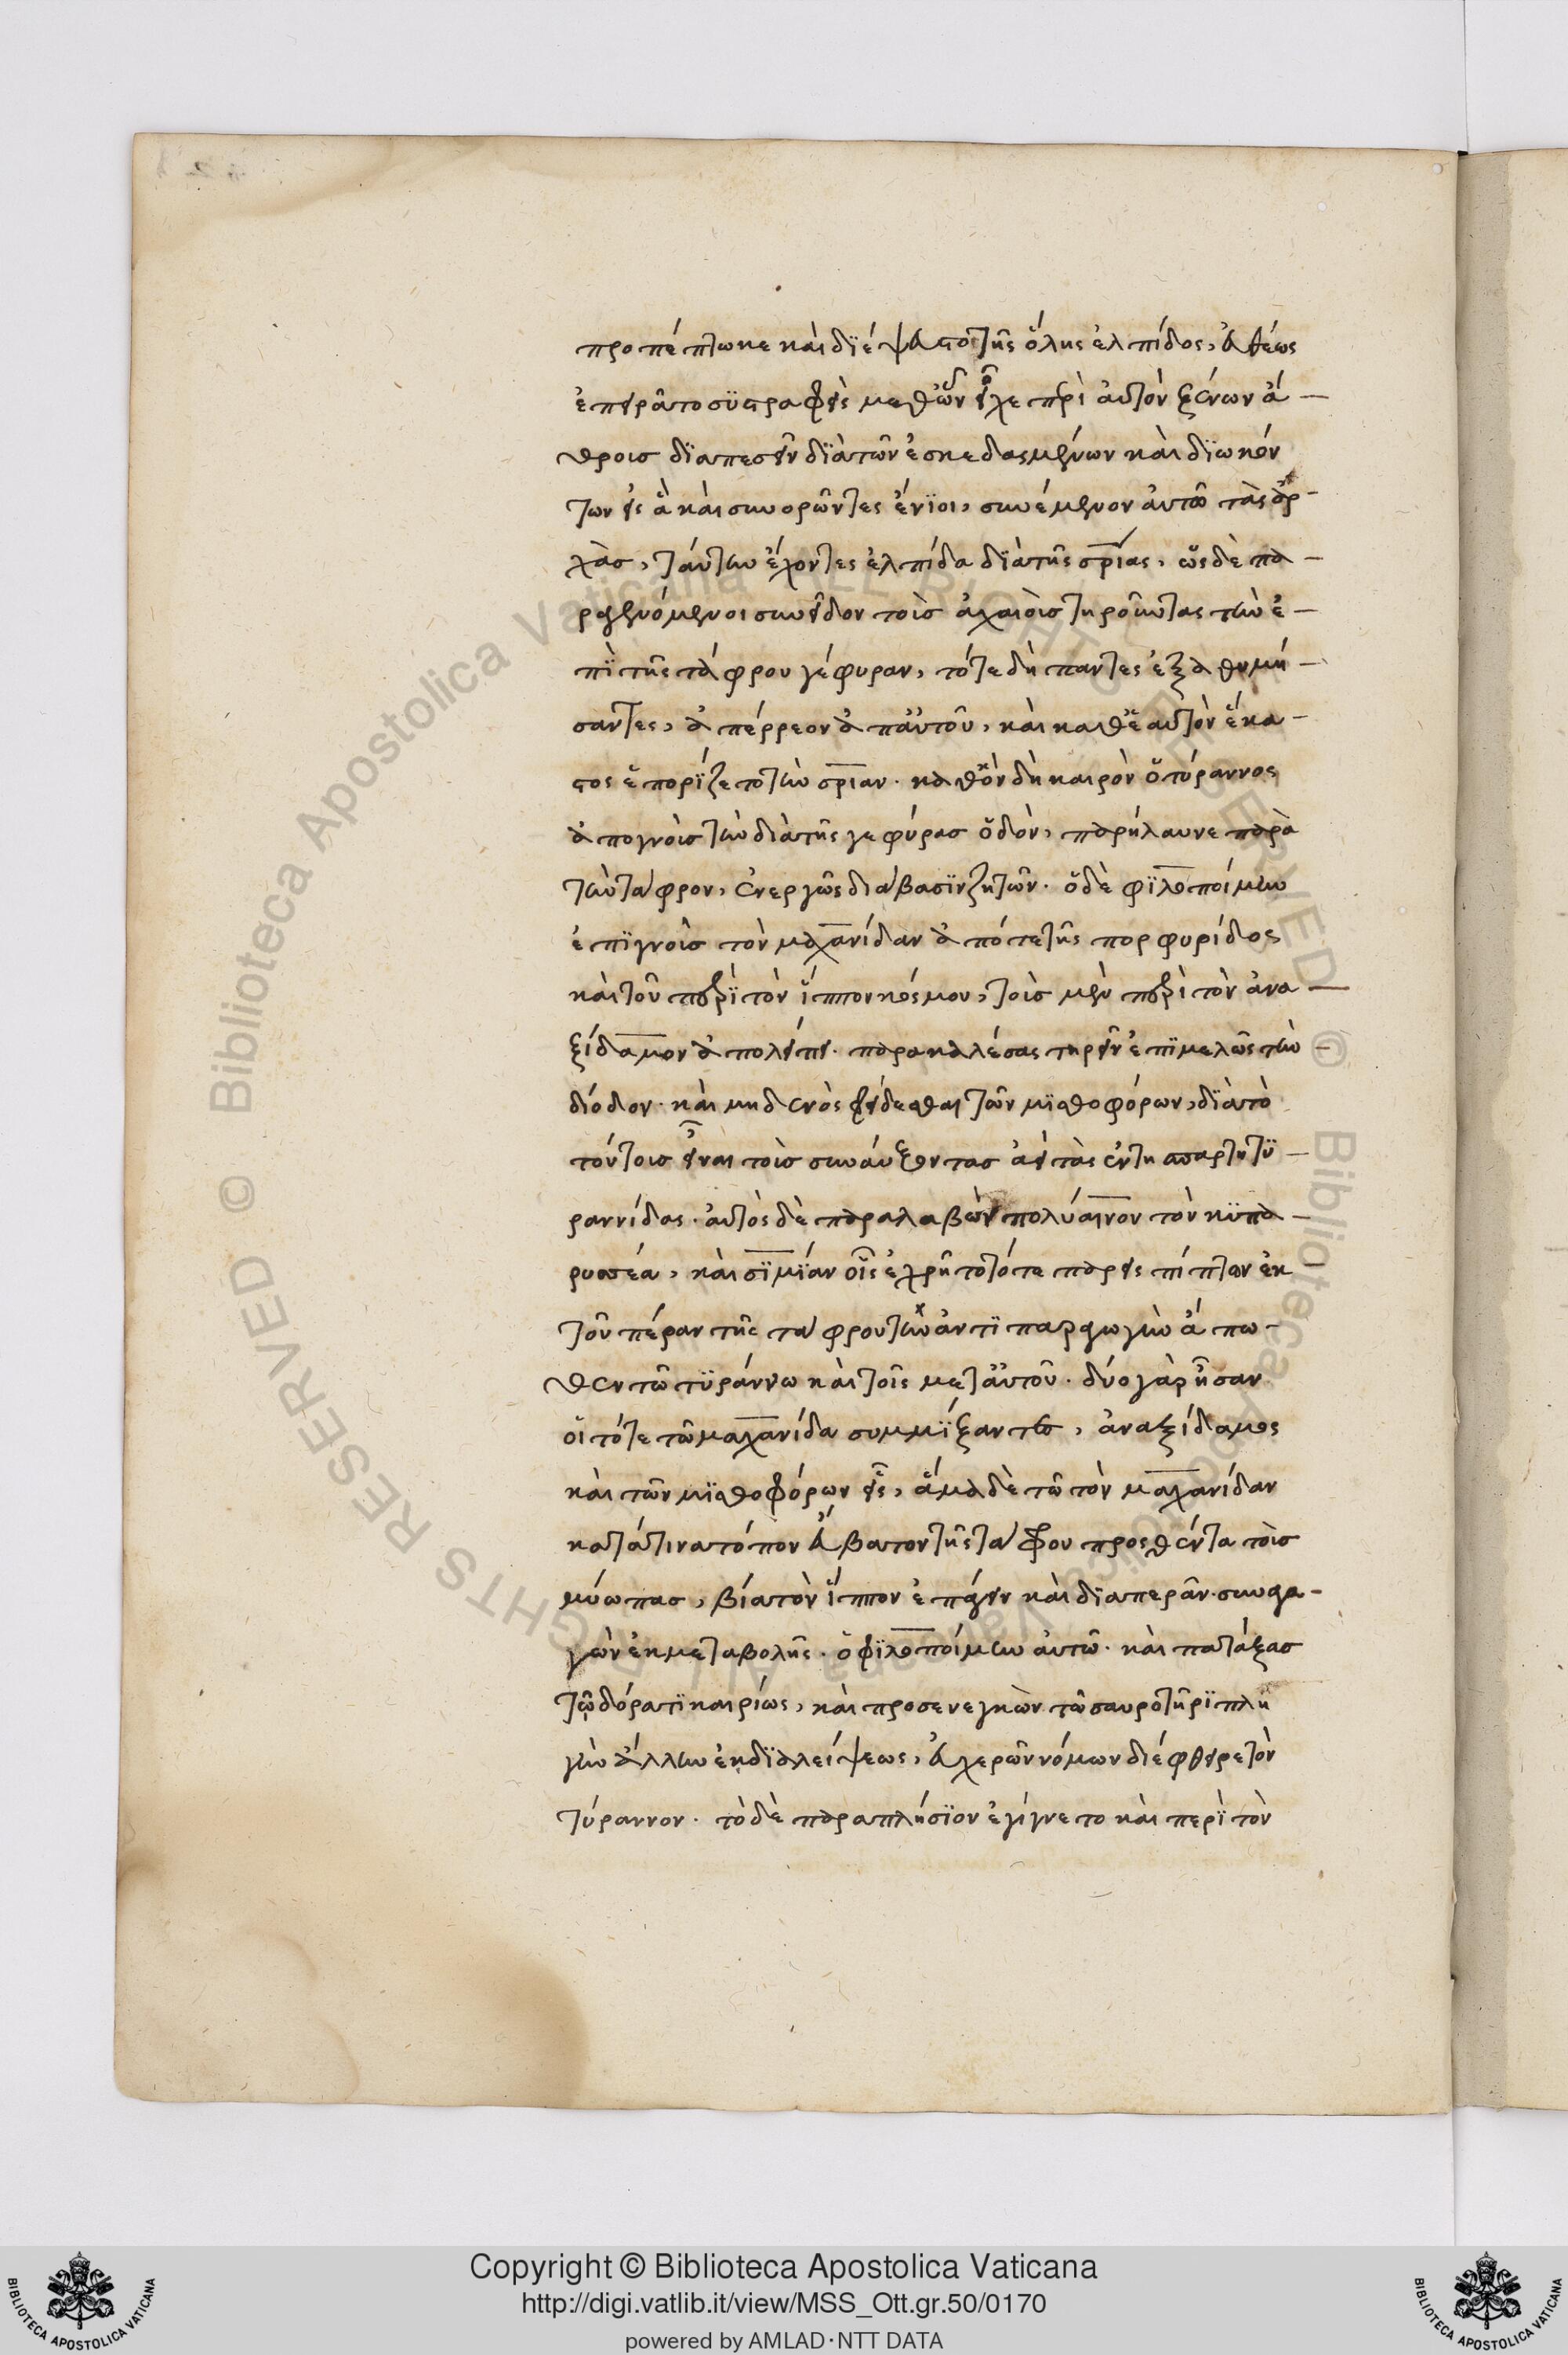 προπέπτωκε καὶ διέψευστο τῆς ὅλης ἐλπίδος, εὐθέως
ἐπειρᾶτο συστραφεὶς μεθ' ὧν εἶχε περὶ αὐτὸν ξένων ἁ-
θροις διαπεσεῖν διὰ τῶν ἐσκεδασμένων καὶ διωκόν
των εἰς ἃ καὶ συνορῶντες ἔνιοι, συνέμενον αὐτῶ τὰς ἀρ-
χὰσ, ταύτην ἔχοντες ἐλπίδα διὰ τῆς σρίας, ὡς δὲ πα-
ραγενόμενοι συνεῖδον τοὺσ ἀχαιοὺσ τηροῦντας τὴν ἐ-
πὶ τῆς τάφρου γέφυραν, τότε δὴ παντες ἐξαθυμή-
σαντες, ἀπέρρεον ἀπ' αὐτοῦ, καὶ καθ' ἑαυτὸν ἕκα-
στος ἐπορίζετο τὴν σριαν. καθ' ὃν δὴ καιρὸν ὁ τύραννος
ἀπογνοὺσ τὴν διὰ τῆς γεφύρασ ὁδὸν, παρήλαυνε παρὰ
τὴν ταφρον, ἐνεργῶς διάβασιν ζητῶν. ὁ δὲ φιλοποίμην
ἐπιγνοὺσ τὸν μαχανίδαν ἀπό τε τῆς πορφυρίδος
καὶ τοῦ περὶ τὸν ἵππον κόσμου, τοὺσ μὲν περὶ τὸν ἀνα-
ξίδαμον ἀπολείπει. παρακαλέσας τηρεῖν ἐπιμελῶς τὴν
δίοδον. καὶ μηδενὸς φείδεσθαι τῶν μισθοφόρων, διὰ τὸ
τούτοισ εἶναι τοὺσ συναύξοντασ ἀεὶ τὰς ἐν τη σπαρτη τυ-
ραννίδας. αὐτὸς δὲ παραλαβὼν πολύαινον τὸν κυπα-
ρισσέα, καὶ σιμίαν οἷς ἐχρῆτο τότε παρεις πίπτων ἐκ
τοῦ πέραν τῆς ταφρου τὴν ἀντιπαραγωγὴν ἄπω-
θεν τῶ τυράννω καὶ τοῖς μετ' αὐτοῦ. δύο γὰρ ἦσαν
οἱ τότε τῶ μαχανίδα συμμίξαντες, ἀναξίδαμος
καὶ τῶν μισθοφόρων εἷς, ἅμα δὲ τῶ τὸν μαχανίδαν
κατά τινα τόπον εὔβατον τῆς τάφρου προσθέντα τοὺσ
μύωπασ, βία τὸν ἵππον ἐπάγειν καὶ διαπερᾶν. συναγα-
γὼν ἐκ μεταβολῆς. ὁ φιλοποίμην αὐτῶ. καὶ πατάξασ
τῶ δόρατι καιρίως, καὶ προσενεγκὼν τῶ σαυρωτῆρι πλη
γὴν ἄλλην ἐκ διαλείψεως, εὐχερῶν νόμων διέφθειρε τὸν
τύραννον. τὸ δὲ παραπλήσιον ἐγίγνετο καὶ περὶ τὸν
Copyright © Biblioteca Apostolica Vaticana
http://digi.vatlib.it/view/MSS_Ott.gr.50/0170
powered by AMLAD·NTT DATA